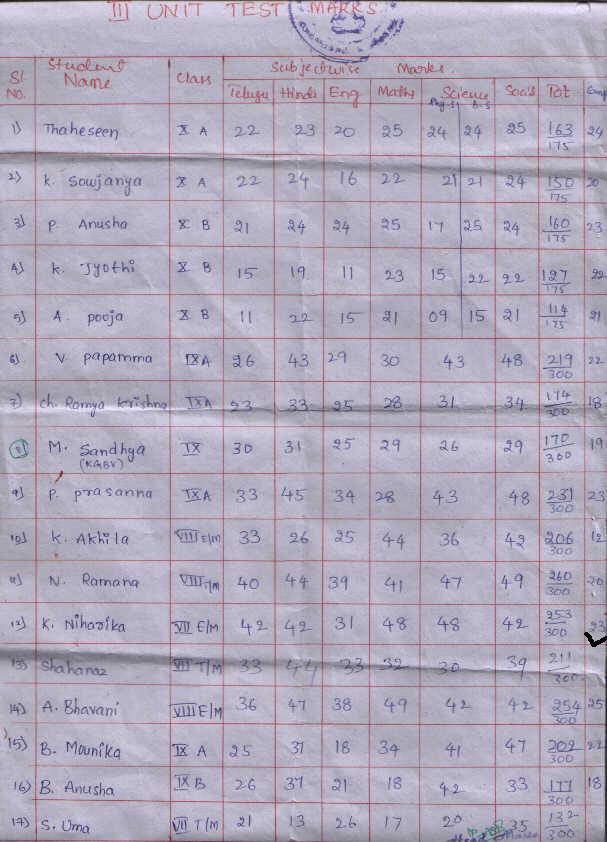 III UNIT TEST MARKS
Sl No. Student Name Class Subjectwise Marks.
Telugu Hindi Eng Maths Science Soc.S Tot Comp
Phy.S B.S
1) Thaheseen X A 22 23 20 25 24 24 25 163/175 24
2) K. Sowjanya X A 22 24 16 22 21 21 24 150/175 20
3) P. Anusha X B 21 24 24 25 17 25 24 160/175 23
4) K. Jyothi X B 15 19 11 23 15 22 22 127/175 22
5) A. pooja X B 11 22 15 21 09 15 21 114/175 21
6) V. papamma IX A 26 43 29 30 43 48 219/300 22
7) Ch. Ramya Krishna IX A 23 33 25 28 31 34 174/300 18
8) M. Sandhya (KGBV) IX 30 31 25 29 26 29 170/300 19
9) P. prasanna IX A 33 45 34 28 43 48 231/300 23
10) K. Akhila VIII E/M 33 26 25 44 36 42 206/300 12
11) N. Ramana VIII T/M 40 44 39 41 47 49 260/300 20
12) K. Niharika VII E/M 42 42 31 48 48 42 253/300 23
13) Shahanaz VII T/M 33 44 33 32 30 39 211/300
14) A. Bhavani VIII E/M 36 47 38 49 42 42 254/300 25
15) B. Mounika IX A 25 37 18 34 41 47 202/300 22
16) B. Anusha IX B 26 37 21 18 42 33 177/300 18
17) S. Uma VII T/M 21 13 26 17 20 35 132/300